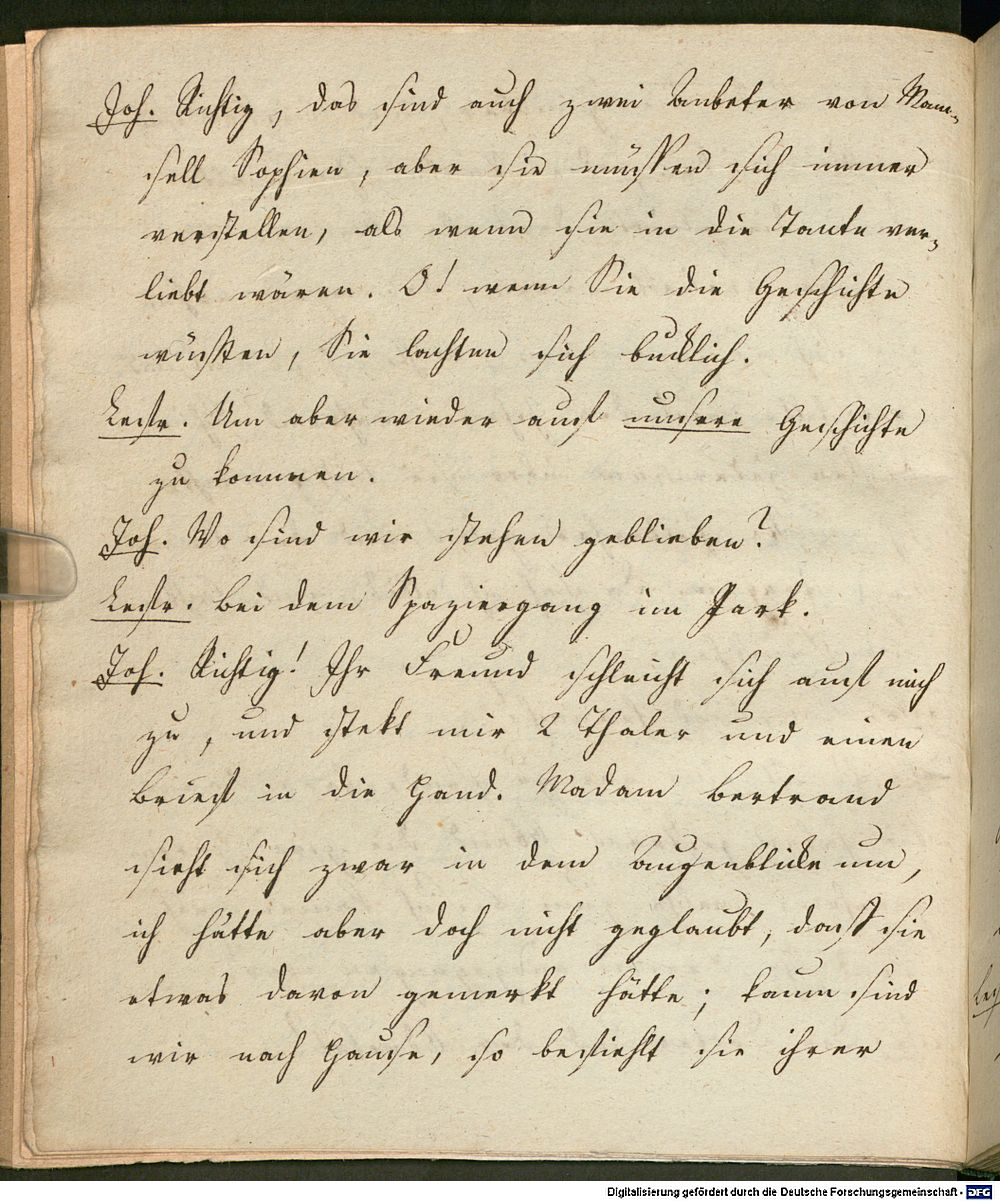 Joh. Richtig, das sind auch zwei Anbeter von Mam-
sell Sophien, aber sie müssen sich immer
verstellen, als wenn sie in die Tante ver-
liebt wären. O! wenn Sie die Geschichte
wüsten, Sie lachten sich bucklich.
Lestr. Um aber wieder auf unsere Geschichte
zu kommen.
Joh. Wo sind wir stehen geblieben?
Lestr. bei dem Spaziergang im Park.
Joh. Richtig! Ihr Freund schleicht sich auf mich
zu, und stekt mir 2 Thaler und einen
brief in die Hand. Madam bertrand
sieht sich zwar in dem Augenblicke um,
ich hätte aber doch nicht geglaubt, dass sie
etwas davon gemerkt hätte; kaum sind
wir nach Hause, so befiehlt sie ihrer
Digitalisierung gefördert durch die Deutsche Forschungsgemeinschaft - DFG